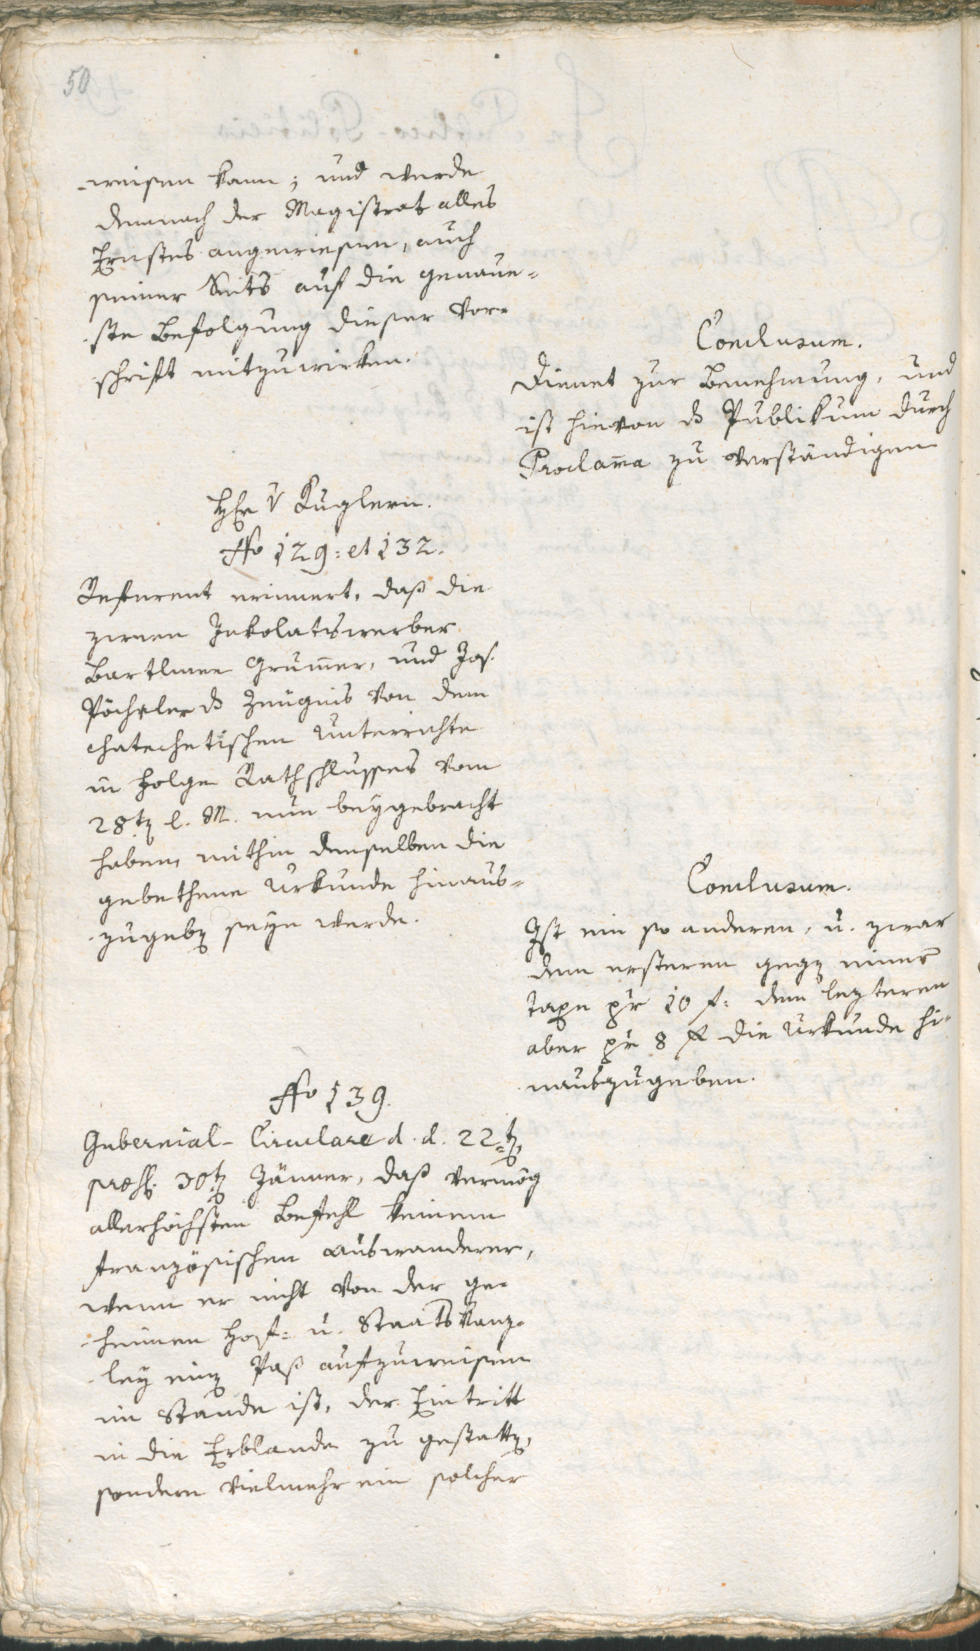 50
-weisen kann; und werde
demnach der Magistrat alles
Ernstes angewiesen, auch
seiner Seits auf die genaue-
ste Befolgung dieser Vor-
schrift mitzuwirken.
Conclusum.
Dienet zur Benehmung, und
ist hievon ds Publikum durch
Proclama zu verständigen
H. v Kuglern.
No 129: et 132.
Referent erinnert, daß die
zween Inkolatswerber
Bartlmee Grumer, und Jos.
Pöchsler ds Zeugnis von dem
chatechetischen Unterrichte
in Folge Rathschlusses vom
28t. l. M. nun beygebracht
haben, mithin denselben die
gebethene Urkunde hinaus-
zugeben seyn werde.
Conclusum.
Ist ein so anderen, u. zwar
dem ersteren gegen einer
Taxe pr 10 f: dem lezteren
aber pr 8 f die Urkunde hi-
nauszugeben.
No 139.
Gubernial-Circulare d. d. 22t.
praes. 30t. Jänner, daß vermög
allerhöchsten Befehl keinem
französischen Auswanderer,
wenn er nicht von der ge-
heimen Hof- u. Staatskanz-
ley einen Paß aufzuweisen
im Stande ist, der Eintritt
in die Erblande zu gestatten,
sondern vielmehr ein solcher